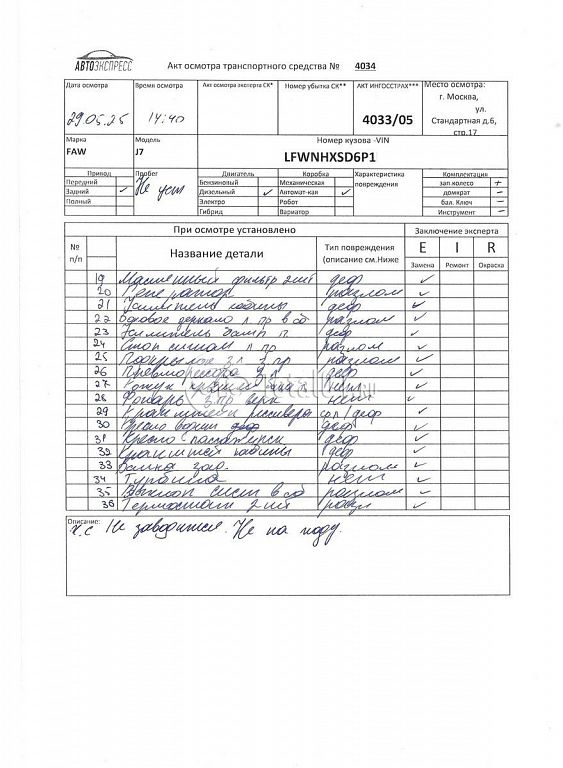 АВТОЭКСПРЕСС
Акт осмотра транспортного средства № 4034
Дата осмотра
29.05.25
Время осмотра
14:40
Акт осмотра эксперта СК*
Номер убытка СК**
АКТ ИНГОССТРАХ***
4033/05
Место осмотра:
г. Москва,
ул.
Стандартная д.6,
стр.17
Марка
FAW
Модель
J7
Номер кузова -VIN
LFWNHXSD6P1
Привод
Передний
Задний ✓
Полный
Пробег
Не уст
Двигатель
Бензиновый
Дизельный ✓
Электро
Гибрид
Коробка
Механическая
Автомат-кая ✓
Робот
Вариатор
Характеристика
повреждения
Комплектация
зап.колесо +
домкрат –
бал. Ключ –
Инструмент –
При осмотре установлено
Заключение эксперта
№
п/п
Название детали
Тип повреждения
(описание см.Ниже
E I R
Замена Ремонт Окраска
19 Масленный фильтр 2шт деф ✓
20 Генератор разлом ✓
21 Усилитель кабины деф ✓
22 Боковое зеркало л пр в сб разлом ✓
23 Усилитель бамп п. деф ✓
24 Стоп сигнал л пр разлом ✓
25 разлом ✓
26 деф ✓
27 Кожух ✓
28 Фонарь з.пр верх нет ✓
29 Кронштейн ресивера деф ✓
30 Кресло водит деф ✓
31 Кресло деф ✓
32 Кронштей кабины деф ✓
33 разлом ✓
34 нет ✓
35 Выхлоп сист в сб разлом ✓
36 Термостат 2шт ✓
Описание:
Не заводится. Не на ходу.